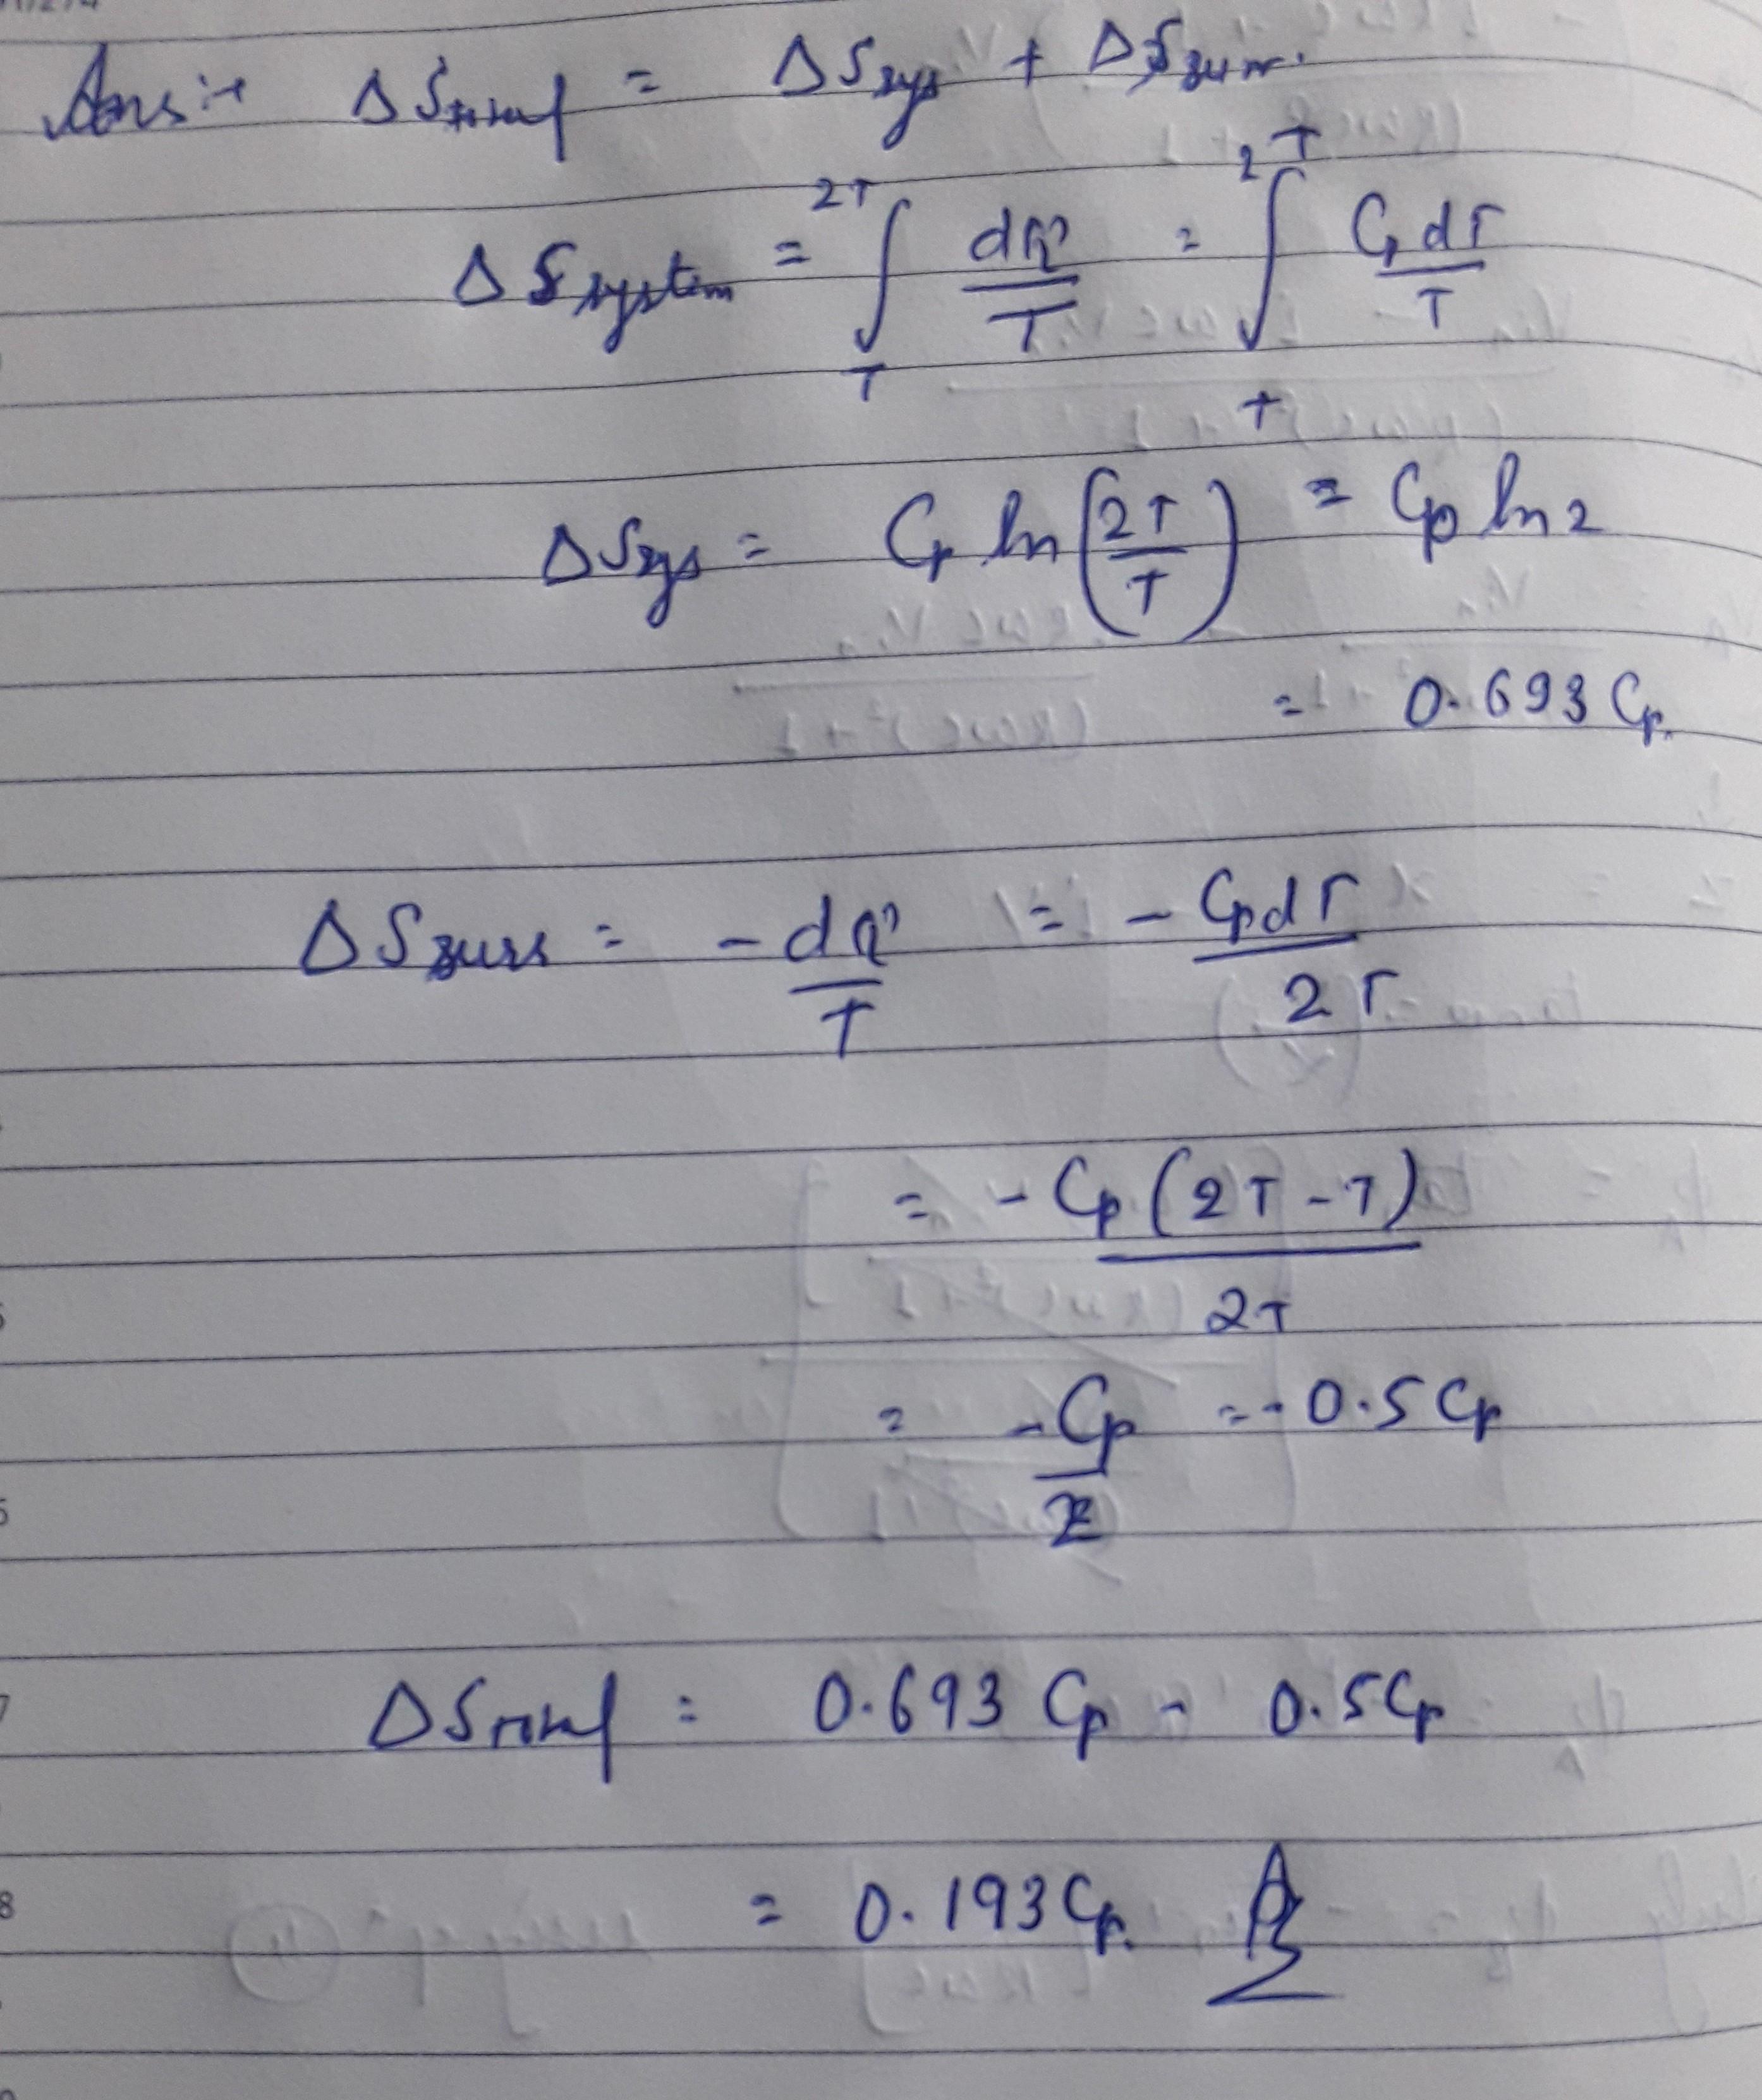 Ans:→ ΔStotal = ΔSsys + ΔSsurr.
ΔSsystem = ∫_T^2T dQ/T = ∫_T^2T CpdT/T
ΔSsys = Cp ln(2T/T) = Cp ln2
= 0.693 Cp.
ΔSsurr = -dQ/T = -CpdT/2T
= -Cp(2T-T)/2T
= -Cp/2 = -0.5 Cp
ΔStotal = 0.693 Cp - 0.5Cp
= 0.193 Cp. A